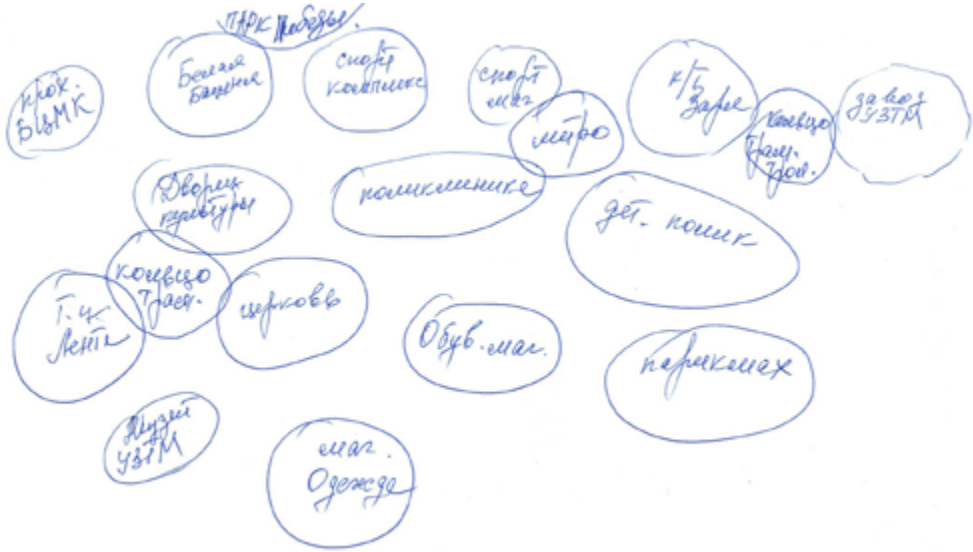 ПАРК Победы.
прох.
БЦМК
Белая
Башня
спорт
комплекс
спорт
маг
метро
к/т
Заря
кольцо
трам.
трол.
завод
УЗТМ
Дворец
культуры
поликлинике
дет. полик
кольцо
Т.ц.
Лента
церковь
Обув. маг.
парикмах
Музей
УЗТМ
маг.
Одежде